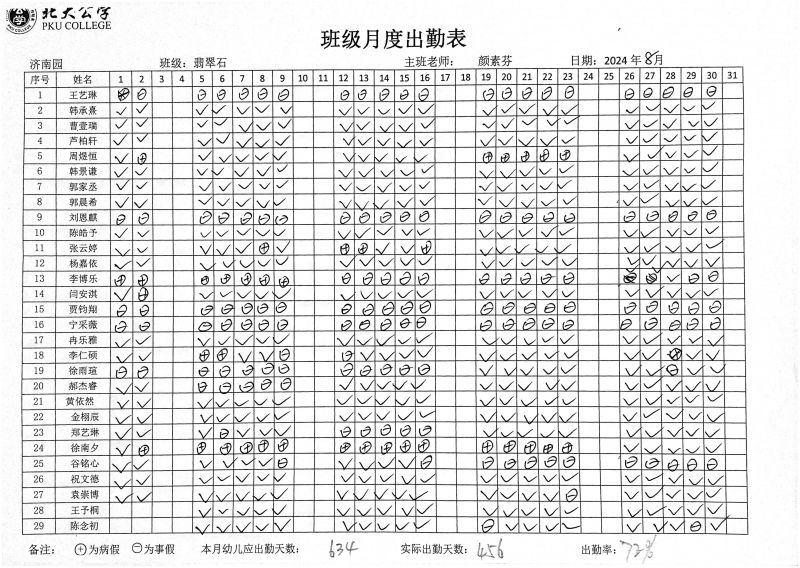 北大公学
PKU COLLEGE
班级月度出勤表
济南园 班级：翡翠石 主班老师： 颜素芬 日期：2024年8月
序号 姓名 1 2 3 4 5 6 7 8 9 10 11 12 13 14 15 16 17 18 19 20 21 22 23 24 25 26 27 28 29 30 31
1 王艺琳
2 韩承熹
3 曹壹瑞
4 芦柏轩
5 周煜恒
6 韩景谦
7 郭家丞
8 郭晨希
9 刘恩麒
10 陈皓予
11 张云婷
12 杨嘉依
13 李博乐
14 闫安淇
15 贾钧翔
16 宁采薇
17 冉乐雅
18 李仁硕
19 徐雨瑄
20 郝杰睿
21 黄依然
22 金栩辰
23 郑艺琳
24 徐南夕
25 谷铭心
26 祝文德
27 袁崇博
28 王予桐
29 陈念初
备注： ⊕为病假 ⊖为事假 本月幼儿应出勤天数： 634 实际出勤天数： 456 出勤率：72%